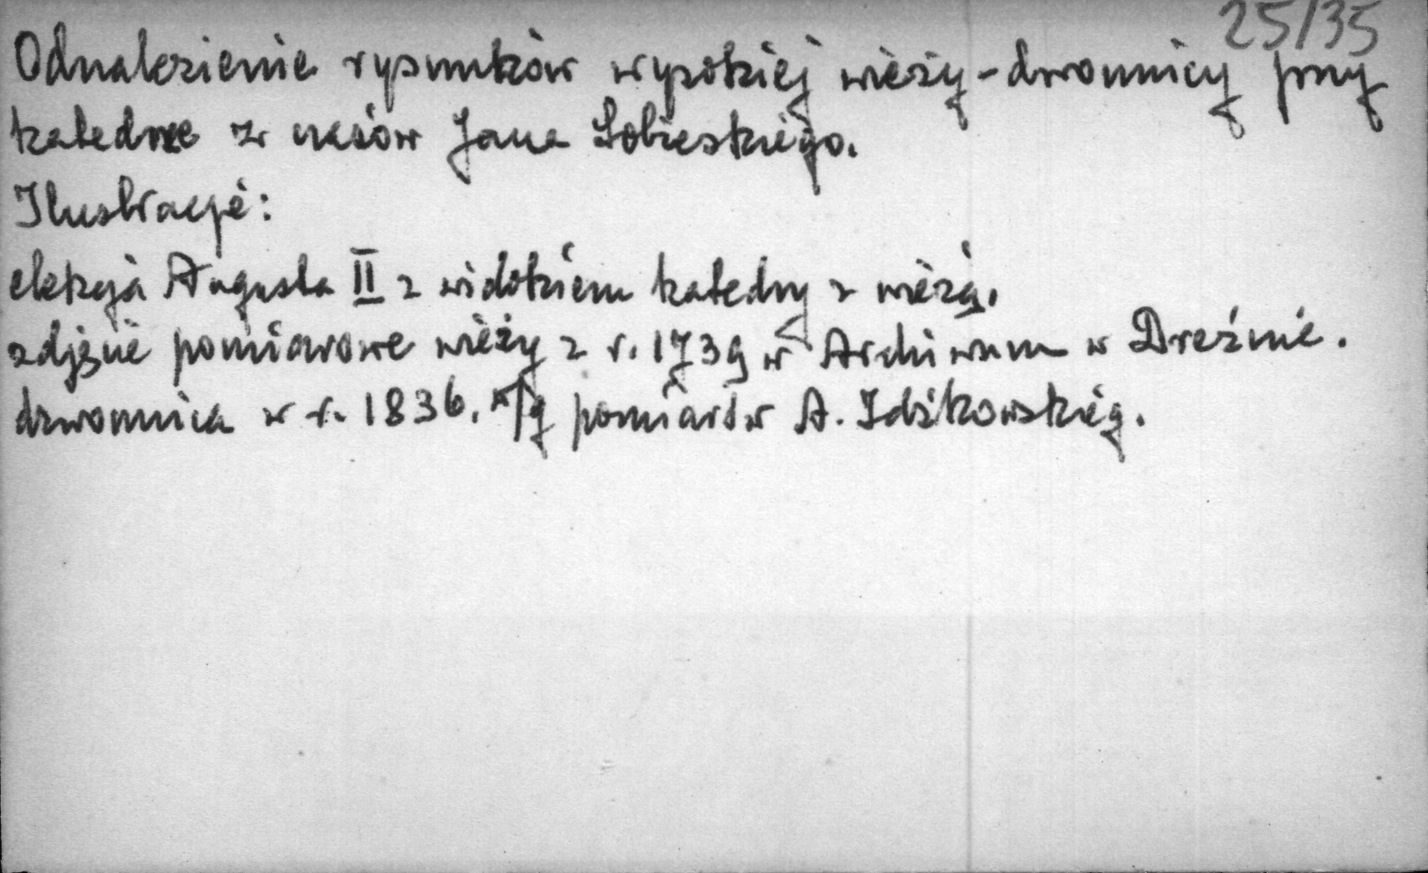 25/35
Odnalezienie rysunków wysokiej wieży-dzwonnicy przy
katedrze z czasów Jana Sobieskiego.
Ilustracje:
elekcja Augusta II z widokiem katedry z wieżą.
zdjęcie pomiarowe wieży z r. 1739 w Archiwum w Dreźnie.
dzwonnica w r. 1836. w/g pomiarów A. Idźkowskieg.